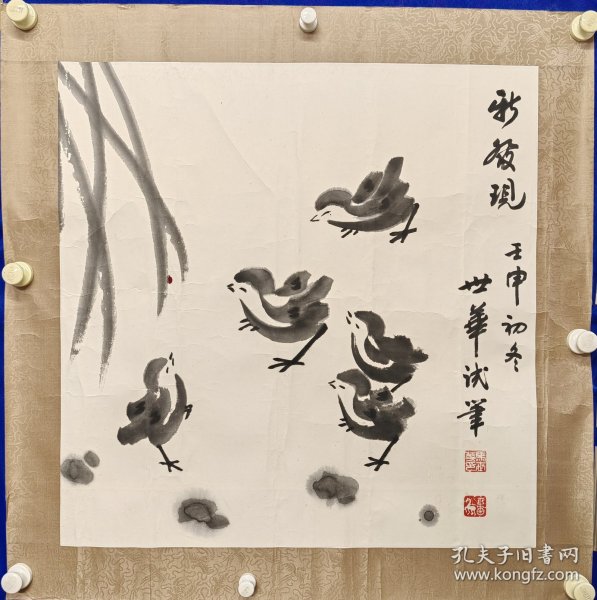 新發現
壬申初冬
世華試筆
孔夫子旧书网
www.kongfz.com